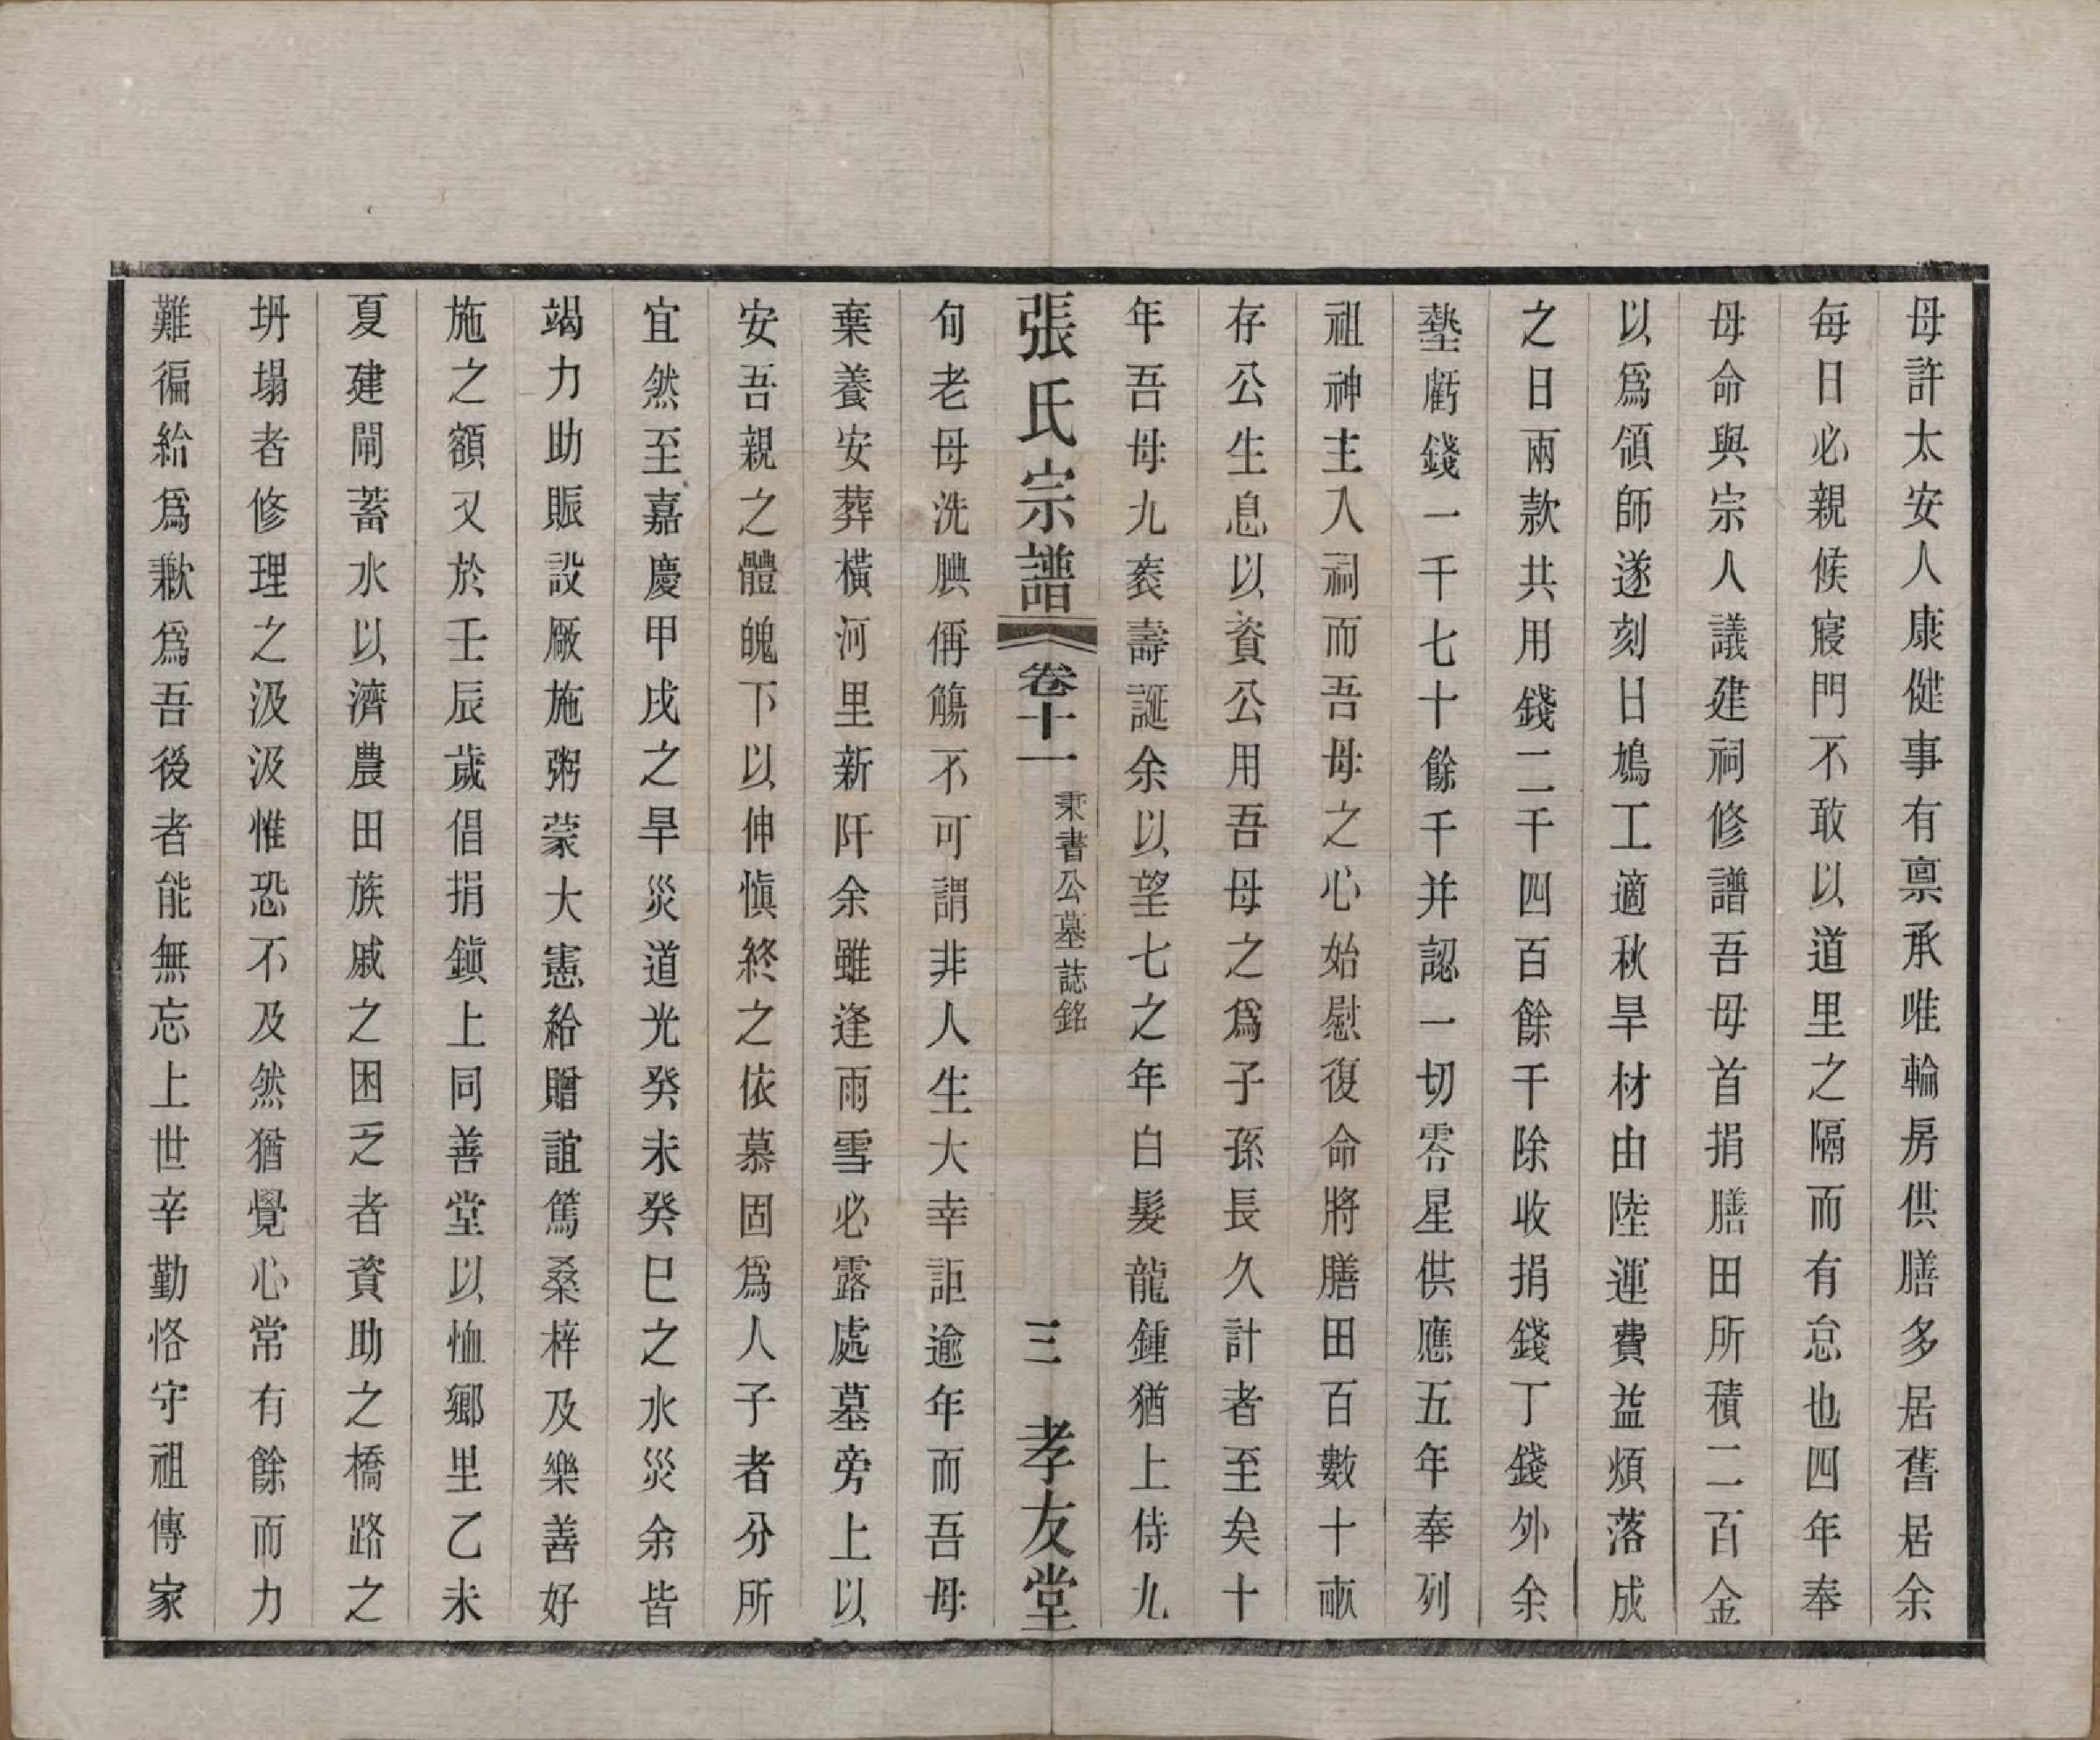 母許太安人康健事有禀承唯輪房供膳多居舊居余
每日必親候寢門不敢以道里之隔而有怠也四年奉
母命與宗人議建祠修譜吾母首捐膳田所積二百金
以爲領師遂刻日鳩工適秋旱材由陸運費益煩落成
之日兩款共用錢二千四百餘千除收捐錢丁錢外余
墊虧錢一千七十餘千并認一切零星供應五年奉列
祖神主入祠而吾母之心始慰復命將膳田百數十畝
存公生息以資公用吾母之爲子孫長久計者至矣十
年吾母九袠壽誕余以望七之年白髮龍鍾猶上侍九
張氏宗譜
卷十一
秉書公墓誌銘
三
孝友堂
旬老母洗腆偁觴不可謂非人生大幸詎逾年而吾母
棄養安葬橫河里新阡余雖逢雨雪必露處墓旁上以
安吾親之體魄下以伸愼終之依慕固爲人子者分所
宜然至嘉慶甲戌之旱災道光癸未癸巳之水災余皆
竭力助賑設厰施粥蒙大憲給贈誼篤桑梓及樂善好
施之額又於壬辰歲倡捐鎭上同善堂以恤鄉里乙未
夏建閘蓄水以濟農田族戚之困乏者資助之橋路之
坍塌者修理之汲汲惟恐不及然猶覺心常有餘而力
難徧給爲歉爲吾後者能無忘上世辛勤恪守祖傳家